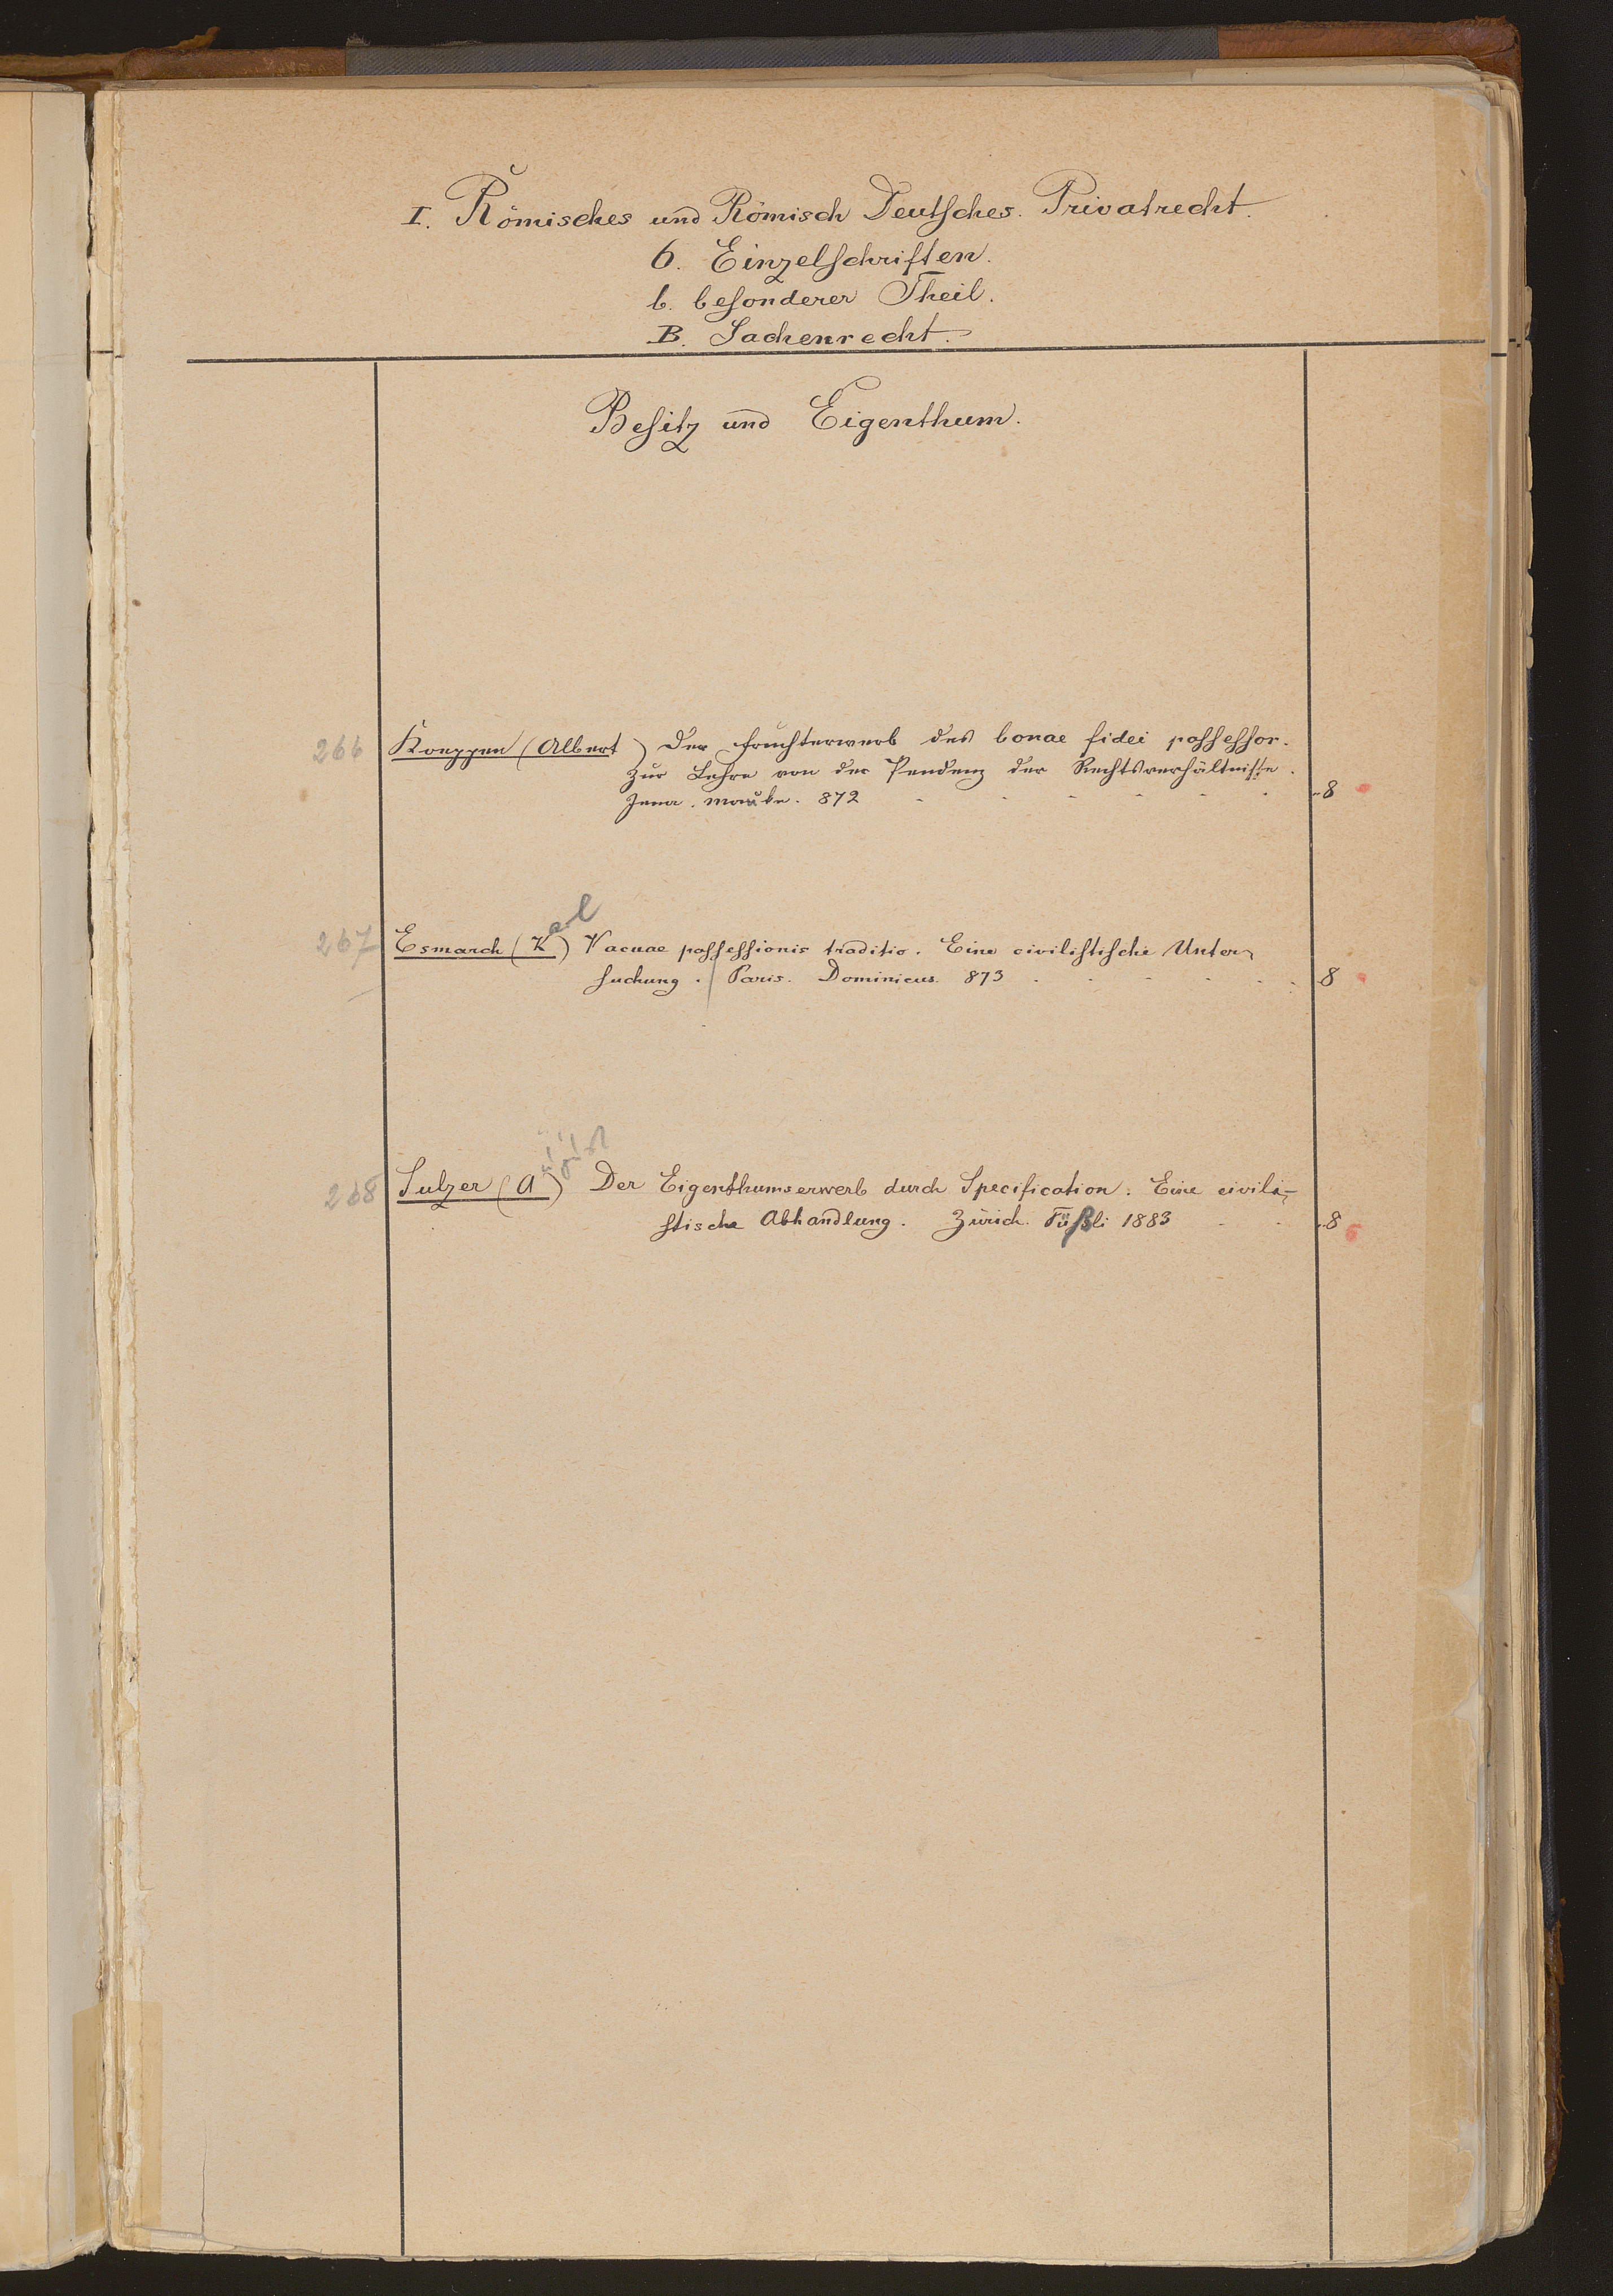 I. Römisches und Römisch Deutsches. Privatrecht.
6. Einzelschriften.
b. besonderer Theil.
B. Sachenrecht.
Besitz und Eigenthum.
266 Koeppen (Albert) Der Fruchterwerb des bonae fidei possessor.
Zur Lehre von der Pendenz der Rechtsverhältnisse.
Jena. Mauke. 872 8
267 Esmarch (Karl) Vacuae possessionis traditio. Eine civilistische Unter-
suchung. Paris. Dominicus. 873 8
268 Sulzer (August) Der Eigenthumserwerb durch Specification: Eine civili-
stische Abhandlung. Zürich. Füßli 1883 8